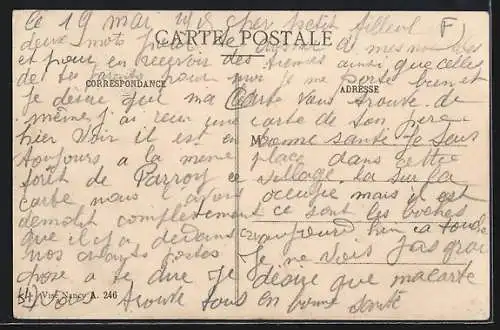 Ce 19 mai 1915 cher petit filleul
CARTE POSTALE
deux mots pour te donner de mes nouvelles
et pour en recevoir des tiennes ainsi que celles
de tes parents pour moi je me porte bien et
CORRESPONDANCE
ADRESSE
je désire que ma carte vous trouve de
même j'ai reçu une carte de ton pere
hier soir il est en bonne santé Je suis
M
toujours a la meme place dans cette
forêt de Parroy ce village la sur la
carte nous l'avons occupé mais il est
demolit completement ce sont les boches
que il y a dedans aujourd'hui
nos avants postes Je ne vois pas grand
chose a te dire Je désire que ma carte
vous trouve tous en bonne santé
Vise Nancy A. 246